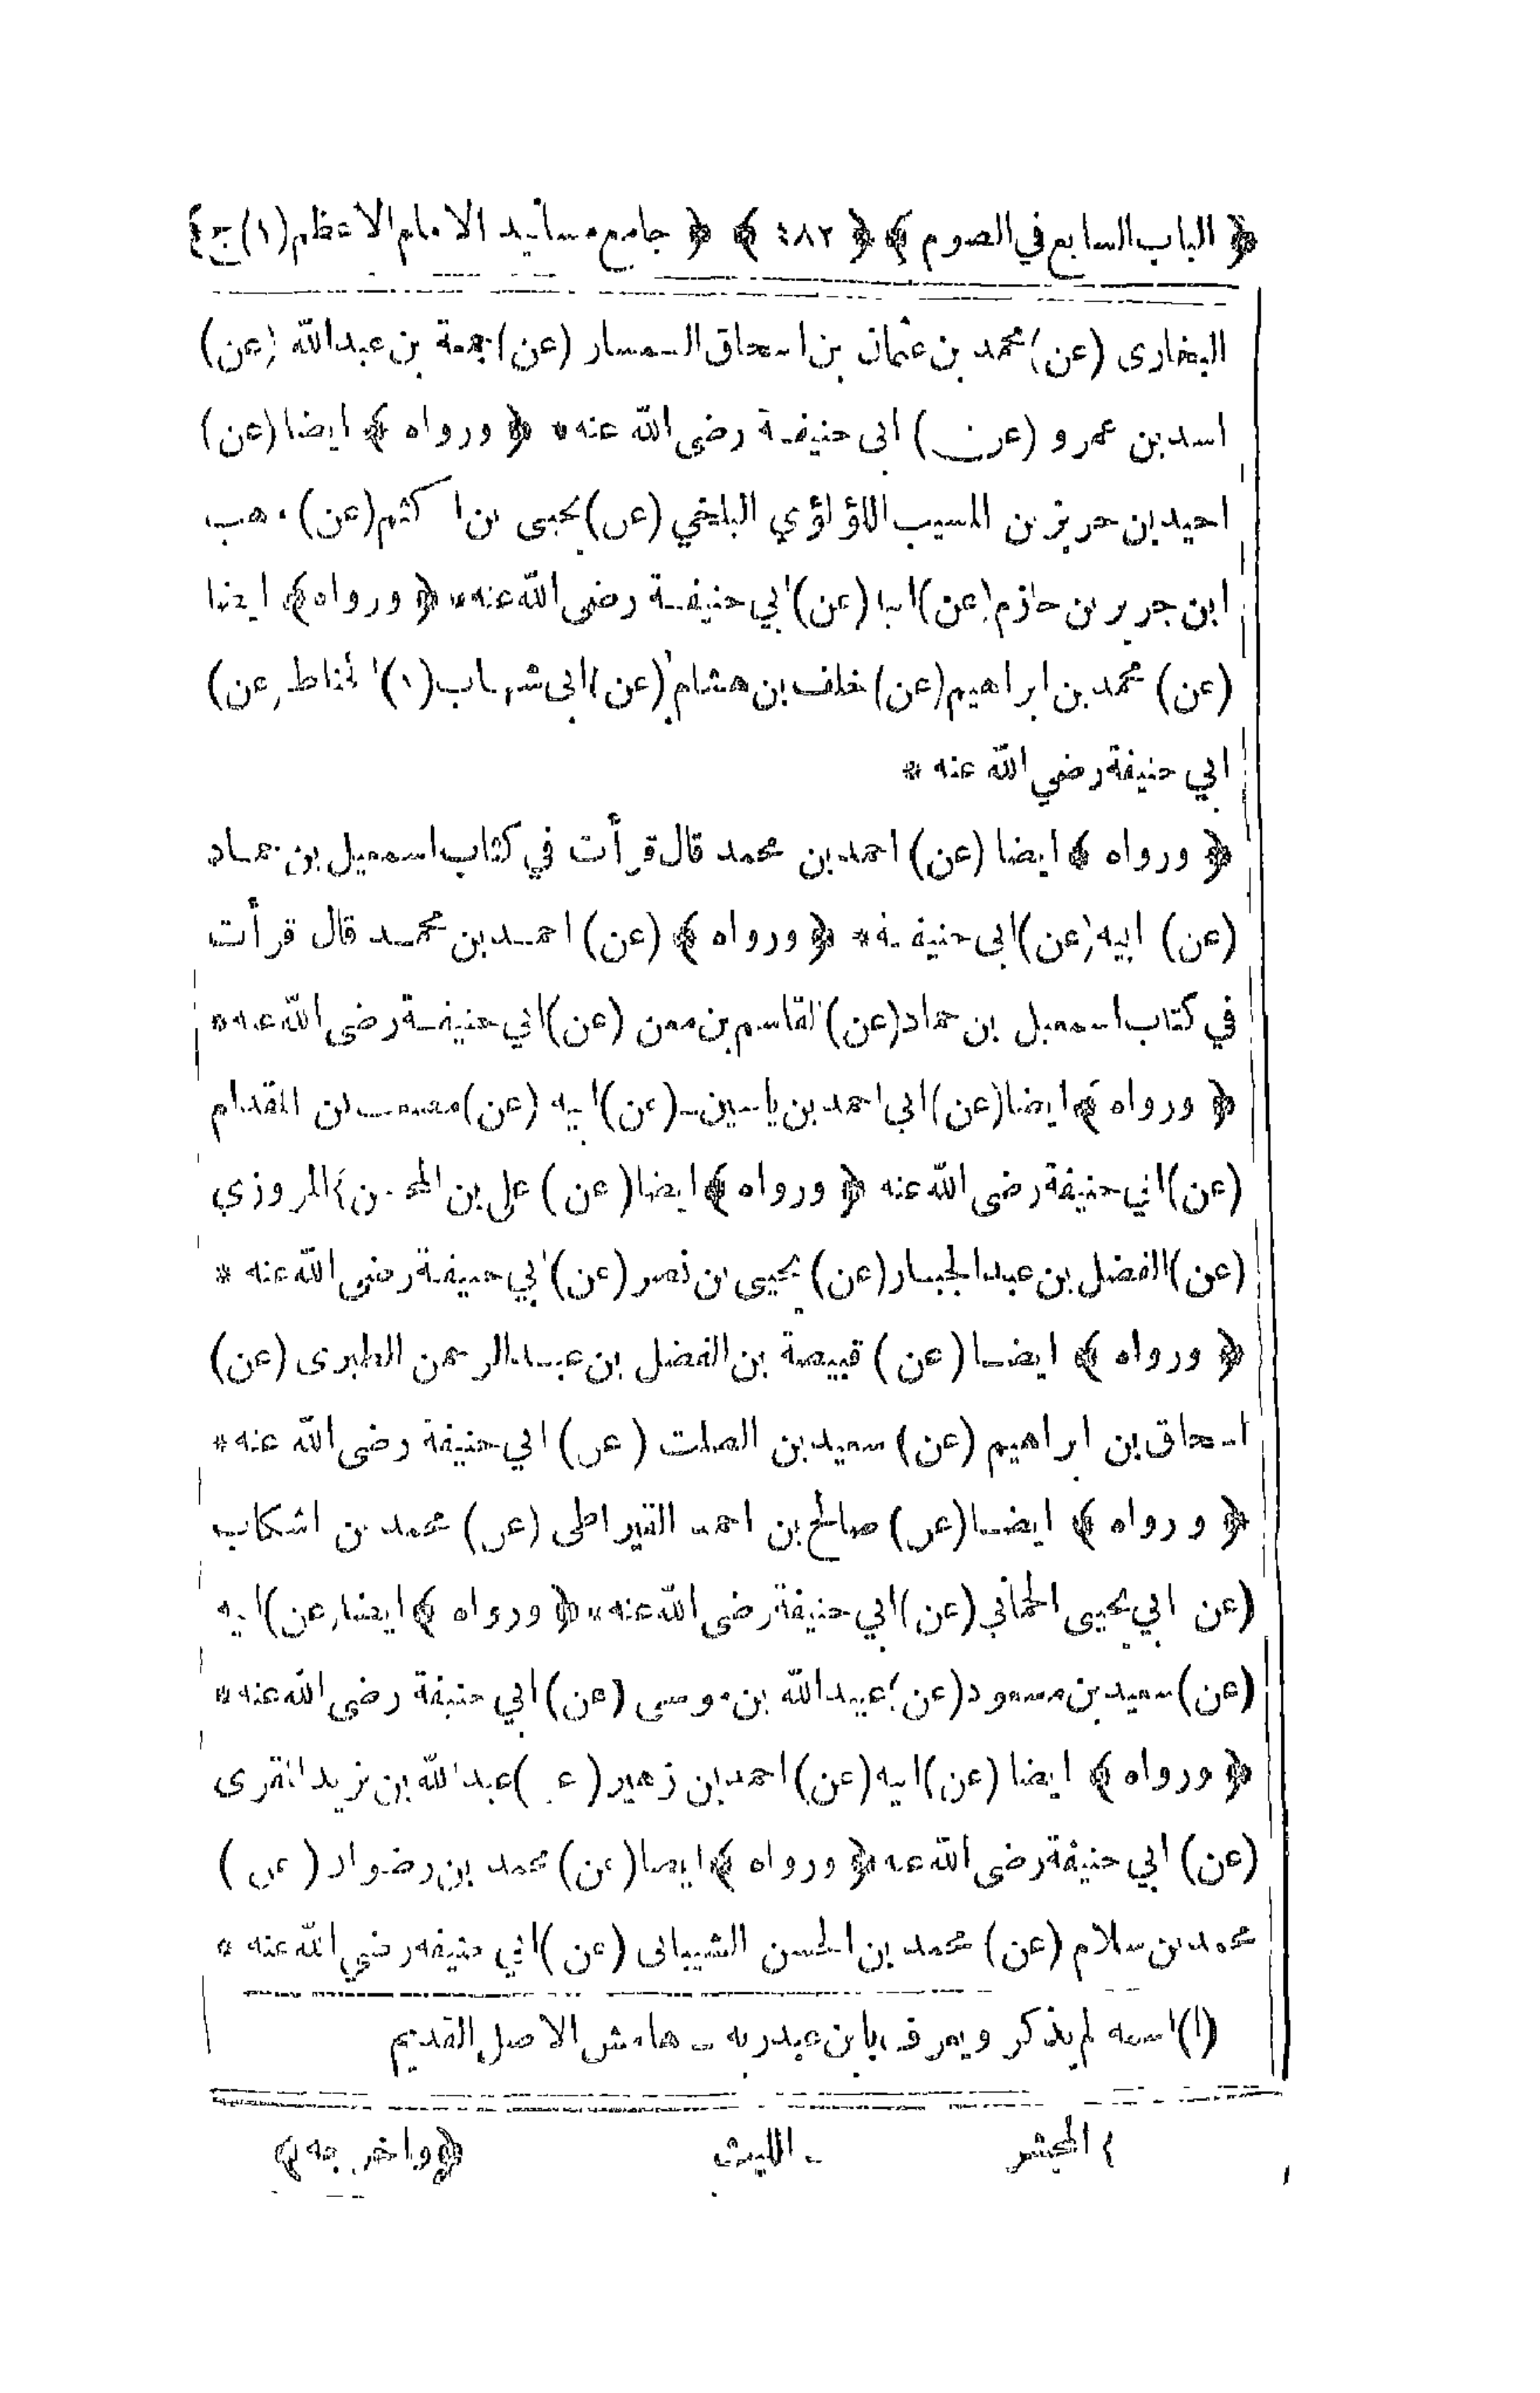 ﴿ الباب السابع في الصوم ﴾ ﴿ ٤٨٢ ﴾ ﴿ جامع مسانيد الامام الاعظم (١) ج ﴾
البخارى (عن) محمد بن عثمان بن اسحاق السمسار (عن) جمعة بن عبد الله (عن)
اسد بن عمرو (عن) ابى حنيفة رضى الله عنه * ﴿ ورواه ﴾ ايضا (عن)
احيد بن حريز بن المسيب اللؤلؤي البلخي (عن) يحيى بن اكثم (عن) وهب
ابن جرير بن حازم (عن) ابيه (عن) ابي حنيفة رضى الله عنه * ﴿ ورواه ﴾ ايضا
(عن) محمد بن ابراهيم (عن) خلف بن هشام (عن) ابى شهاب (١) الحناط (عن)
ابي حنيفة رضي الله عنه *
﴿ ورواه ﴾ ايضا (عن) احمد بن محمد قال قرأت في كتاب اسمعيل بن حماد
(عن) ابيه (عن) ابى حنيفة * ﴿ ورواه ﴾ (عن) احمد بن محمد قال قرأت
في كتاب اسمعيل بن حماد (عن) القاسم بن معن (عن) ابي حنيفة رضى الله عنه *
﴿ ورواه ﴾ ايضا (عن) ابى احمد بن ياسين (عن) ابيه (عن) مصعب بن المقدام
(عن) ابي حنيفة رضى الله عنه ﴿ ورواه ﴾ ايضا (عن) على بن المروزي
(عن) الفضل بن عبد الجبار (عن) يحيى بن نصر (عن) ابي حنيفة رضى الله عنه *
﴿ ورواه ﴾ ايضا (عن) قبيصة بن الفضل بن عبد الرحمن الطبرى (عن)
اسحاق بن ابراهيم (عن) سعيد بن الصلت (عن) ابي حنيفة رضى الله عنه *
﴿ ورواه ﴾ ايضا (عن) صالح بن احمد القيراطى (عن) محمد بن اشكاب
(عن ابي يحيى الحماني (عن) ابي حنيفة رضى الله عنه * ﴿ ورواه ﴾ ايضا (عن) ابيه
(عن) سعيد بن مسعود (عن) عبيد الله بن موسى (عن) ابي حنيفة رضى الله عنه *
﴿ ورواه ﴾ ايضا (عن) ابيه (عن) احمد بن زهير (عن) عبد الله بن يزيد المقرى
(عن) ابي حنيفة رضى الله عنه * ﴿ ورواه ﴾ ايضا (عن) محمد بن رضوان (عن)
محمد بن سلام (عن) محمد بن الحسن الشيبانى (عن) ابي حنيفه رضي الله عنه *
(١) اسمه لم يذكر ويعرف بابن عبد ربه - هامش الاصل القديم
﴿ واخرجه ﴾